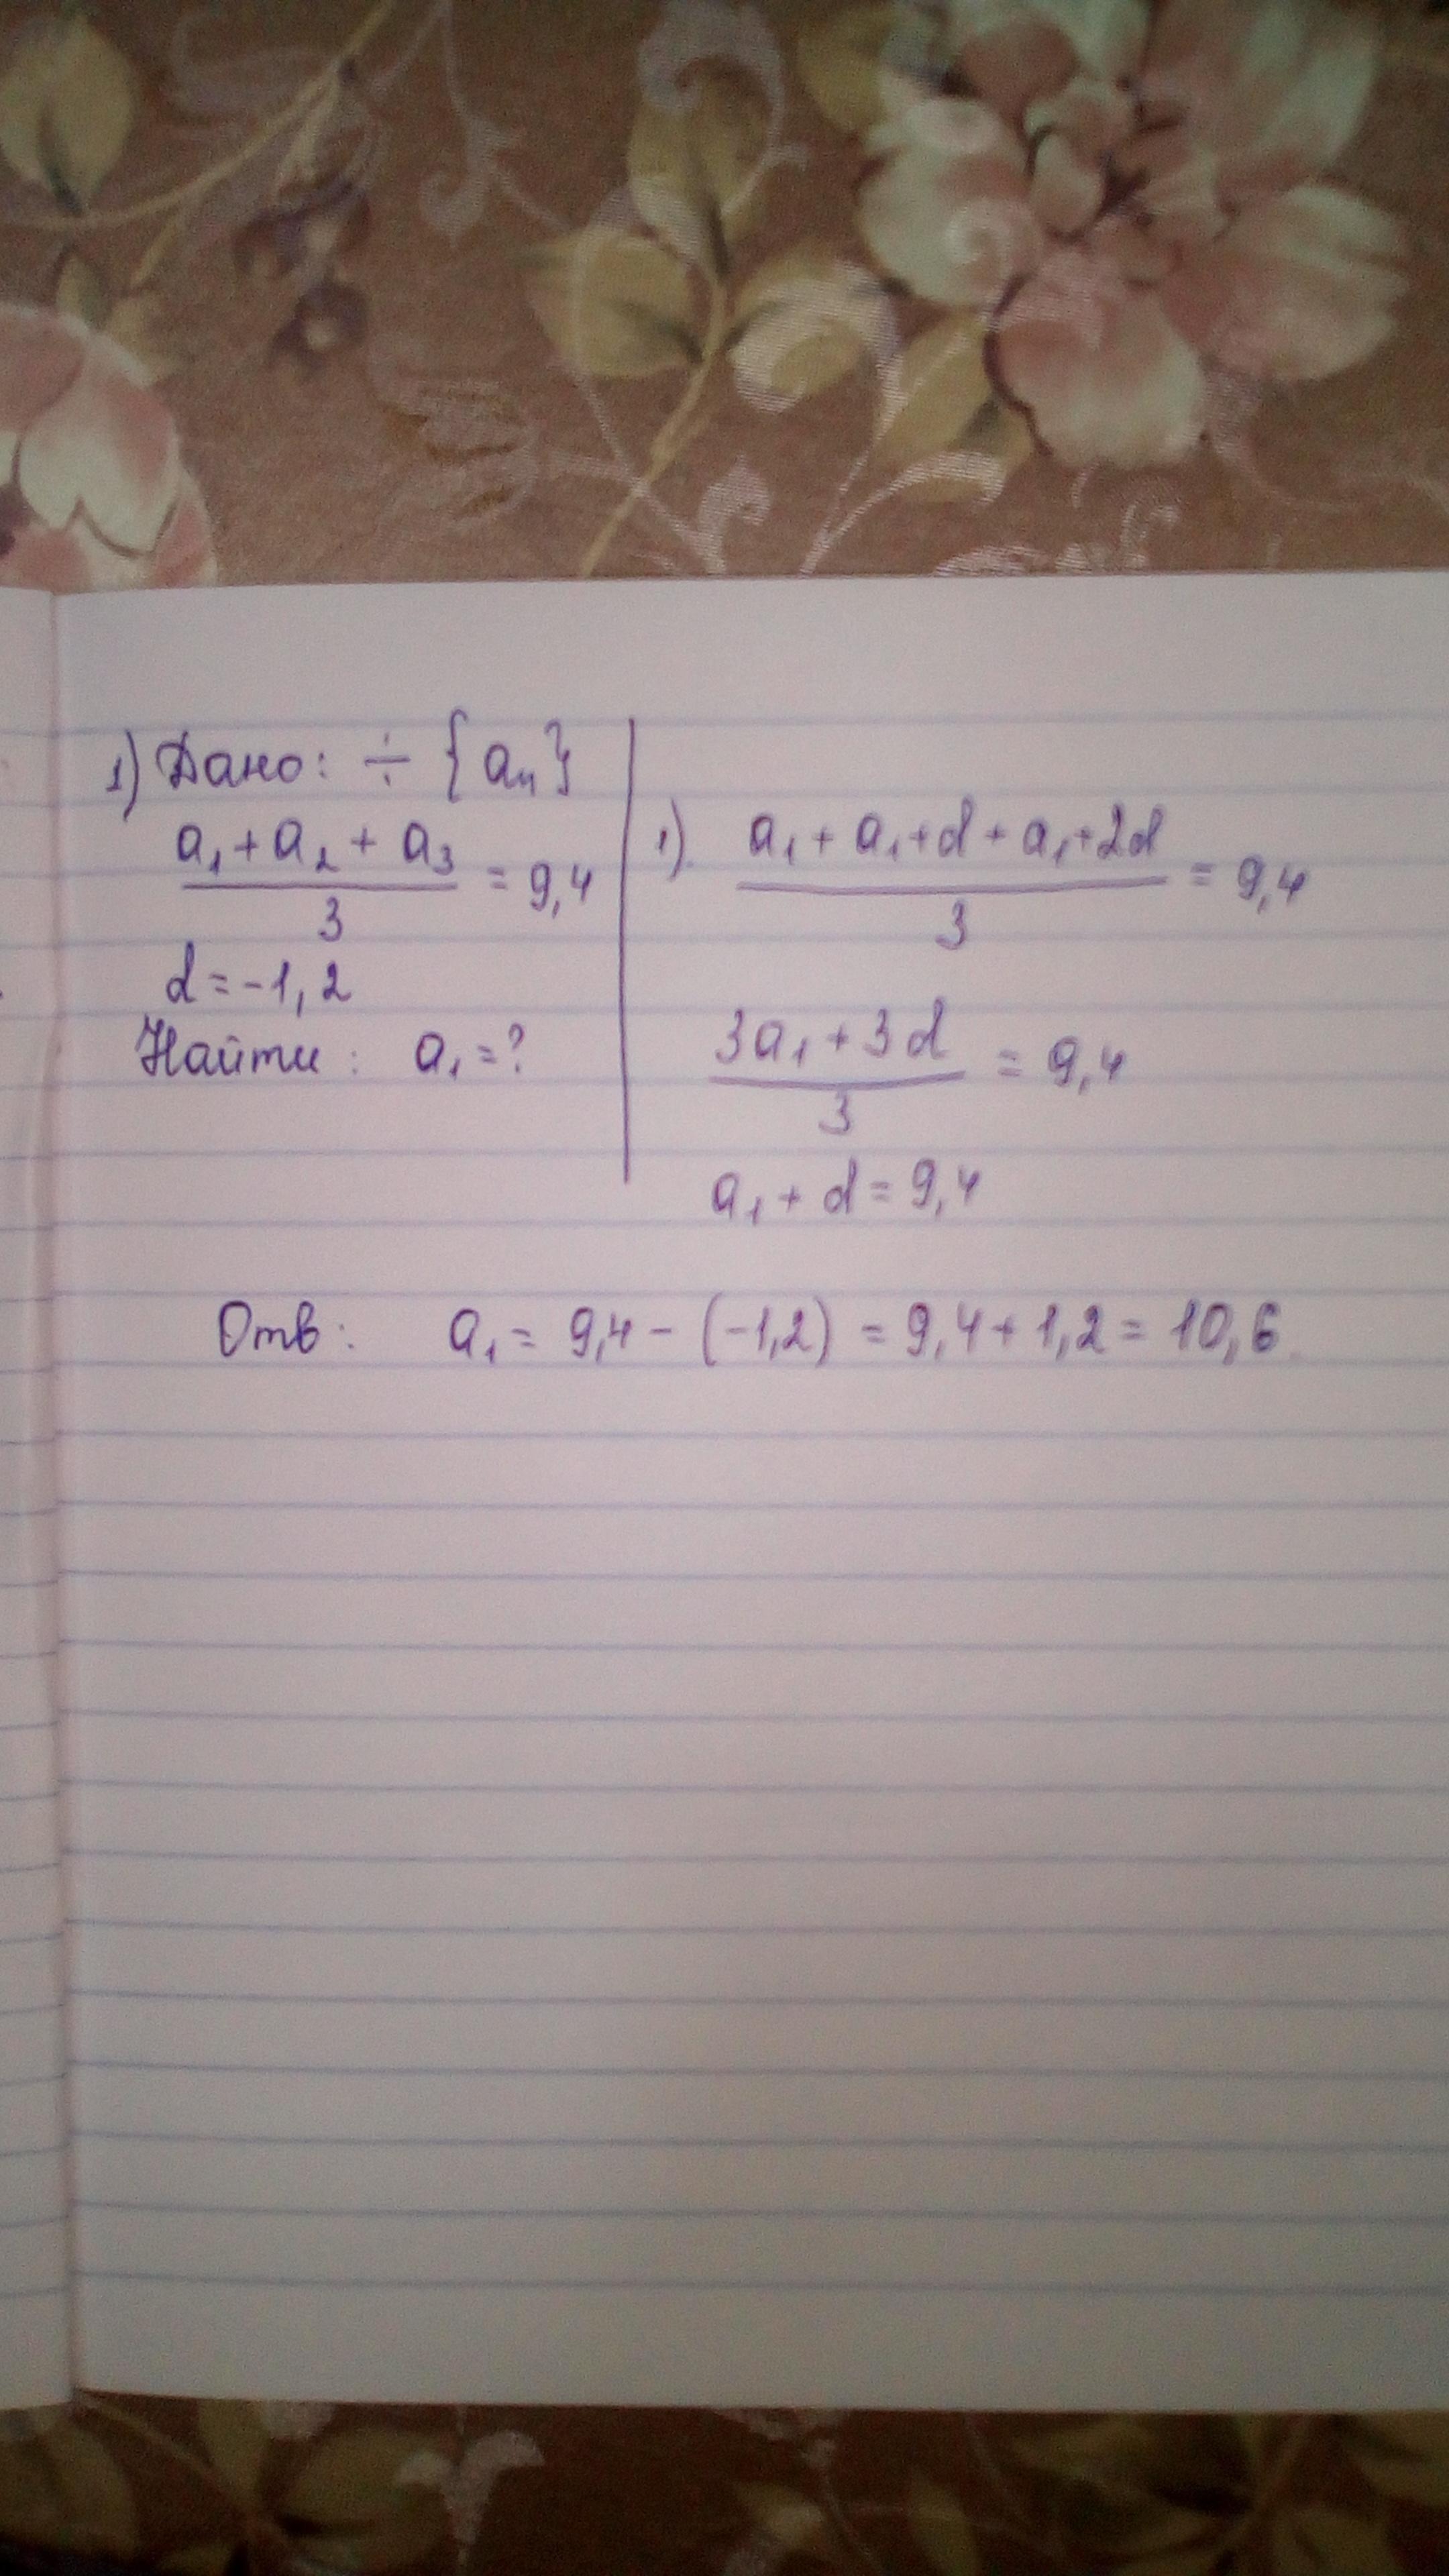 1) Дано: ÷ {aₙ}
(a₁ + a₂ + a₃)/3 = 9,4
d = -1,2
Найти: a₁ = ?
1). (a₁ + a₁ + d + a₁ + 2d)/3 = 9,4
(3a₁ + 3d)/3 = 9,4
a₁ + d = 9,4
Отв: a₁ = 9,4 - (-1,2) = 9,4 + 1,2 = 10,6